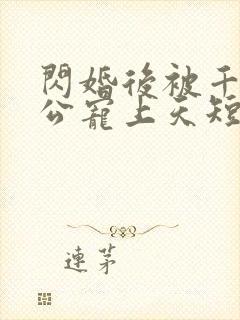 閃婚後被千
公寵上天短
連茅